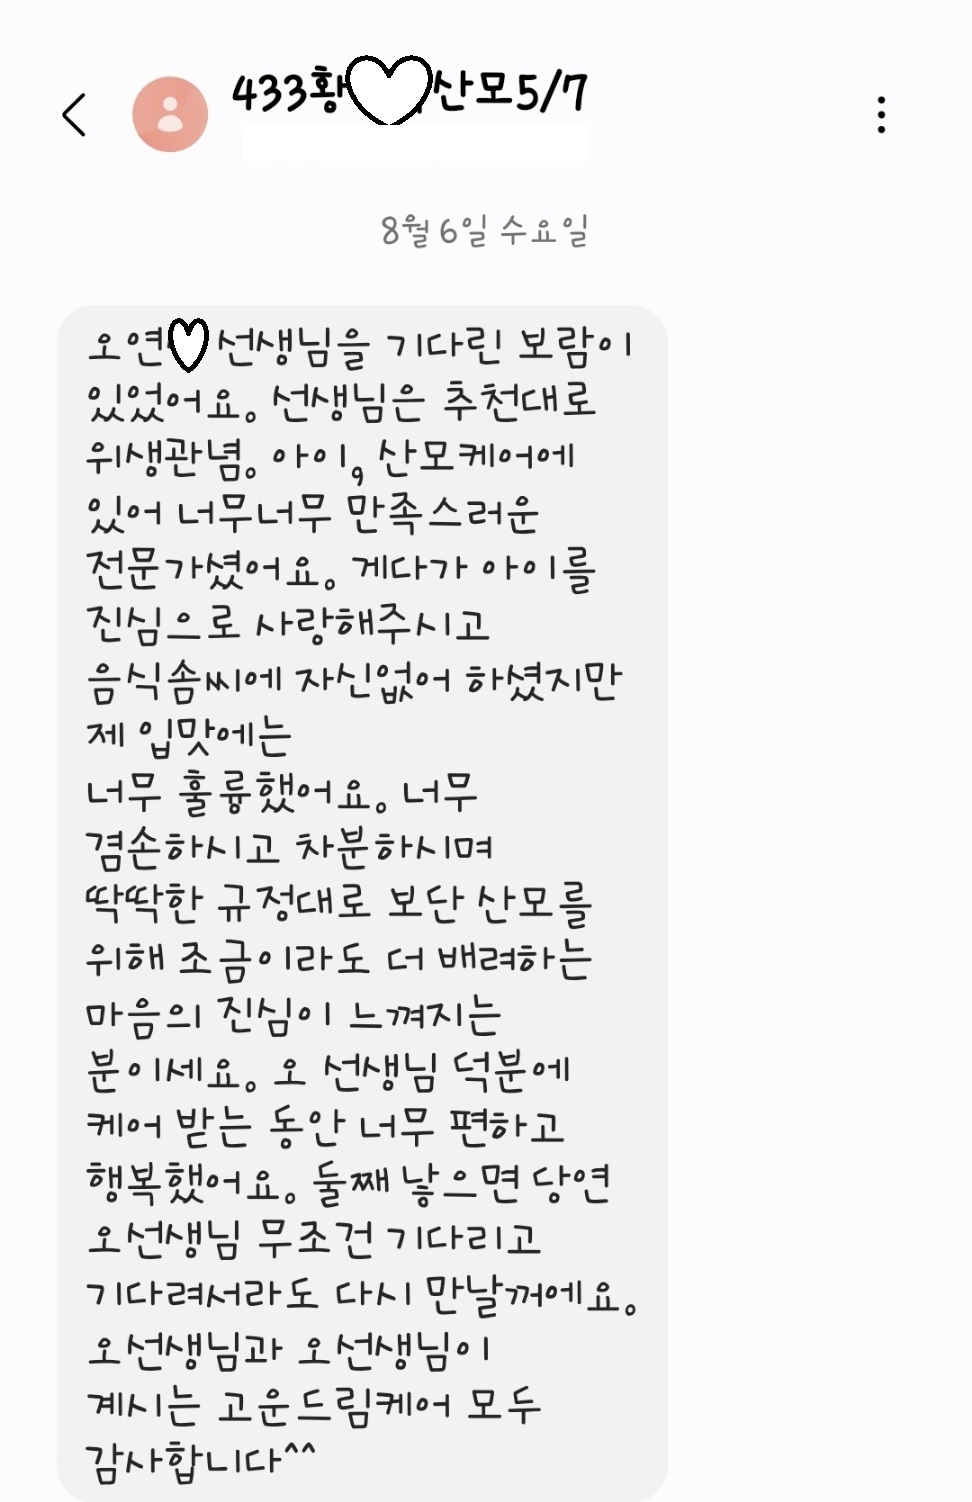 433황 산모5/7
8월 6일 수요일
오연 선생님을 기다린 보람이
있었어요. 선생님은 추천대로
위생관념. 아이, 산모케어에
있어 너무너무 만족스러운
전문가셨어요. 게다가 아이를
진심으로 사랑해주시고
음식솜씨에 자신없어 하셨지만
제 입맛에는
너무 훌륭했어요. 너무
겸손하시고 차분하시며
딱딱한 규정대로 보단 산모를
위해 조금이라도 더 배려하는
마음의 진심이 느껴지는
분이세요. 오 선생님 덕분에
케어 받는 동안 너무 편하고
행복했어요. 둘째 낳으면 당연
오선생님 무조건 기다리고
기다려서라도 다시 만날꺼에요.
오선생님과 오선생님이
계시는 고운드림케어 모두
감사합니다^^